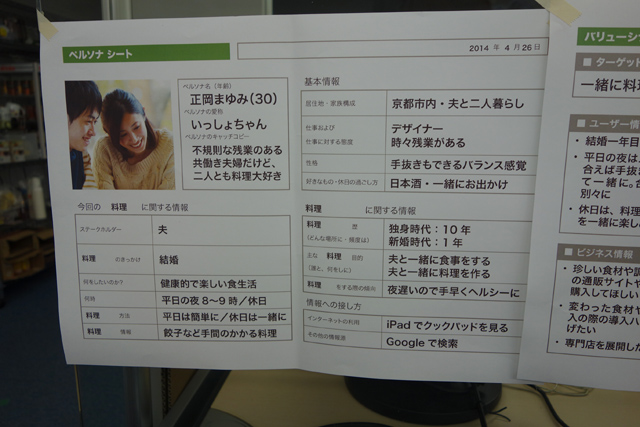 ペルソナ シート
2014 年 4 月 26 日
ペルソナ名（年齢）
正岡まゆみ（30）
ペルソナの愛称
いっしょちゃん
ペルソナのキャッチコピー
不規則な残業のある
共働き夫婦だけど、
二人とも料理大好き
基本情報
居住地・家族構成 京都市内・夫と二人暮らし
仕事および
仕事に対する態度
デザイナー
時々残業がある
性格 手抜きもできるバランス感覚
好きなもの・休日の過ごし方 日本酒・一緒にお出かけ
今回の 料理 に関する情報
ステークホルダー 夫
料理 のきっかけ 結婚
何をしたいのか？ 健康的で楽しい食生活
何時 平日の夜8～9時／休日
料理 方法 平日は簡単に／休日は一緒に
料理 情報 餃子など手間のかかる料理
料理 に関する情報
料理 歴
（どんな場所に・頻度は）
独身時代：10年
新婚時代：1年
主な 料理 目的
（誰と、何をしに）
夫と一緒に食事をする
夫と一緒に料理を作る
料理 をする際の傾向 夜遅いので手早くヘルシーに
情報への接し方
インターネットの利用 iPadでクックパッドを見る
その他の情報源 Googleで検索
バリューシ
■ ターゲット
一緒に料
■ ユーザー情
・ 結婚一年目
・ 平日の夜は
合えば手抜
て一緒に。
別々に
・ 休日は、料理
を一緒に楽し
■ ビジネス情報
・ 珍しい食材や調
の通販サイトや
購入してほしい
・ 変わった食材や
入の際の導入ハ
げたい
・ 専門店を展開した